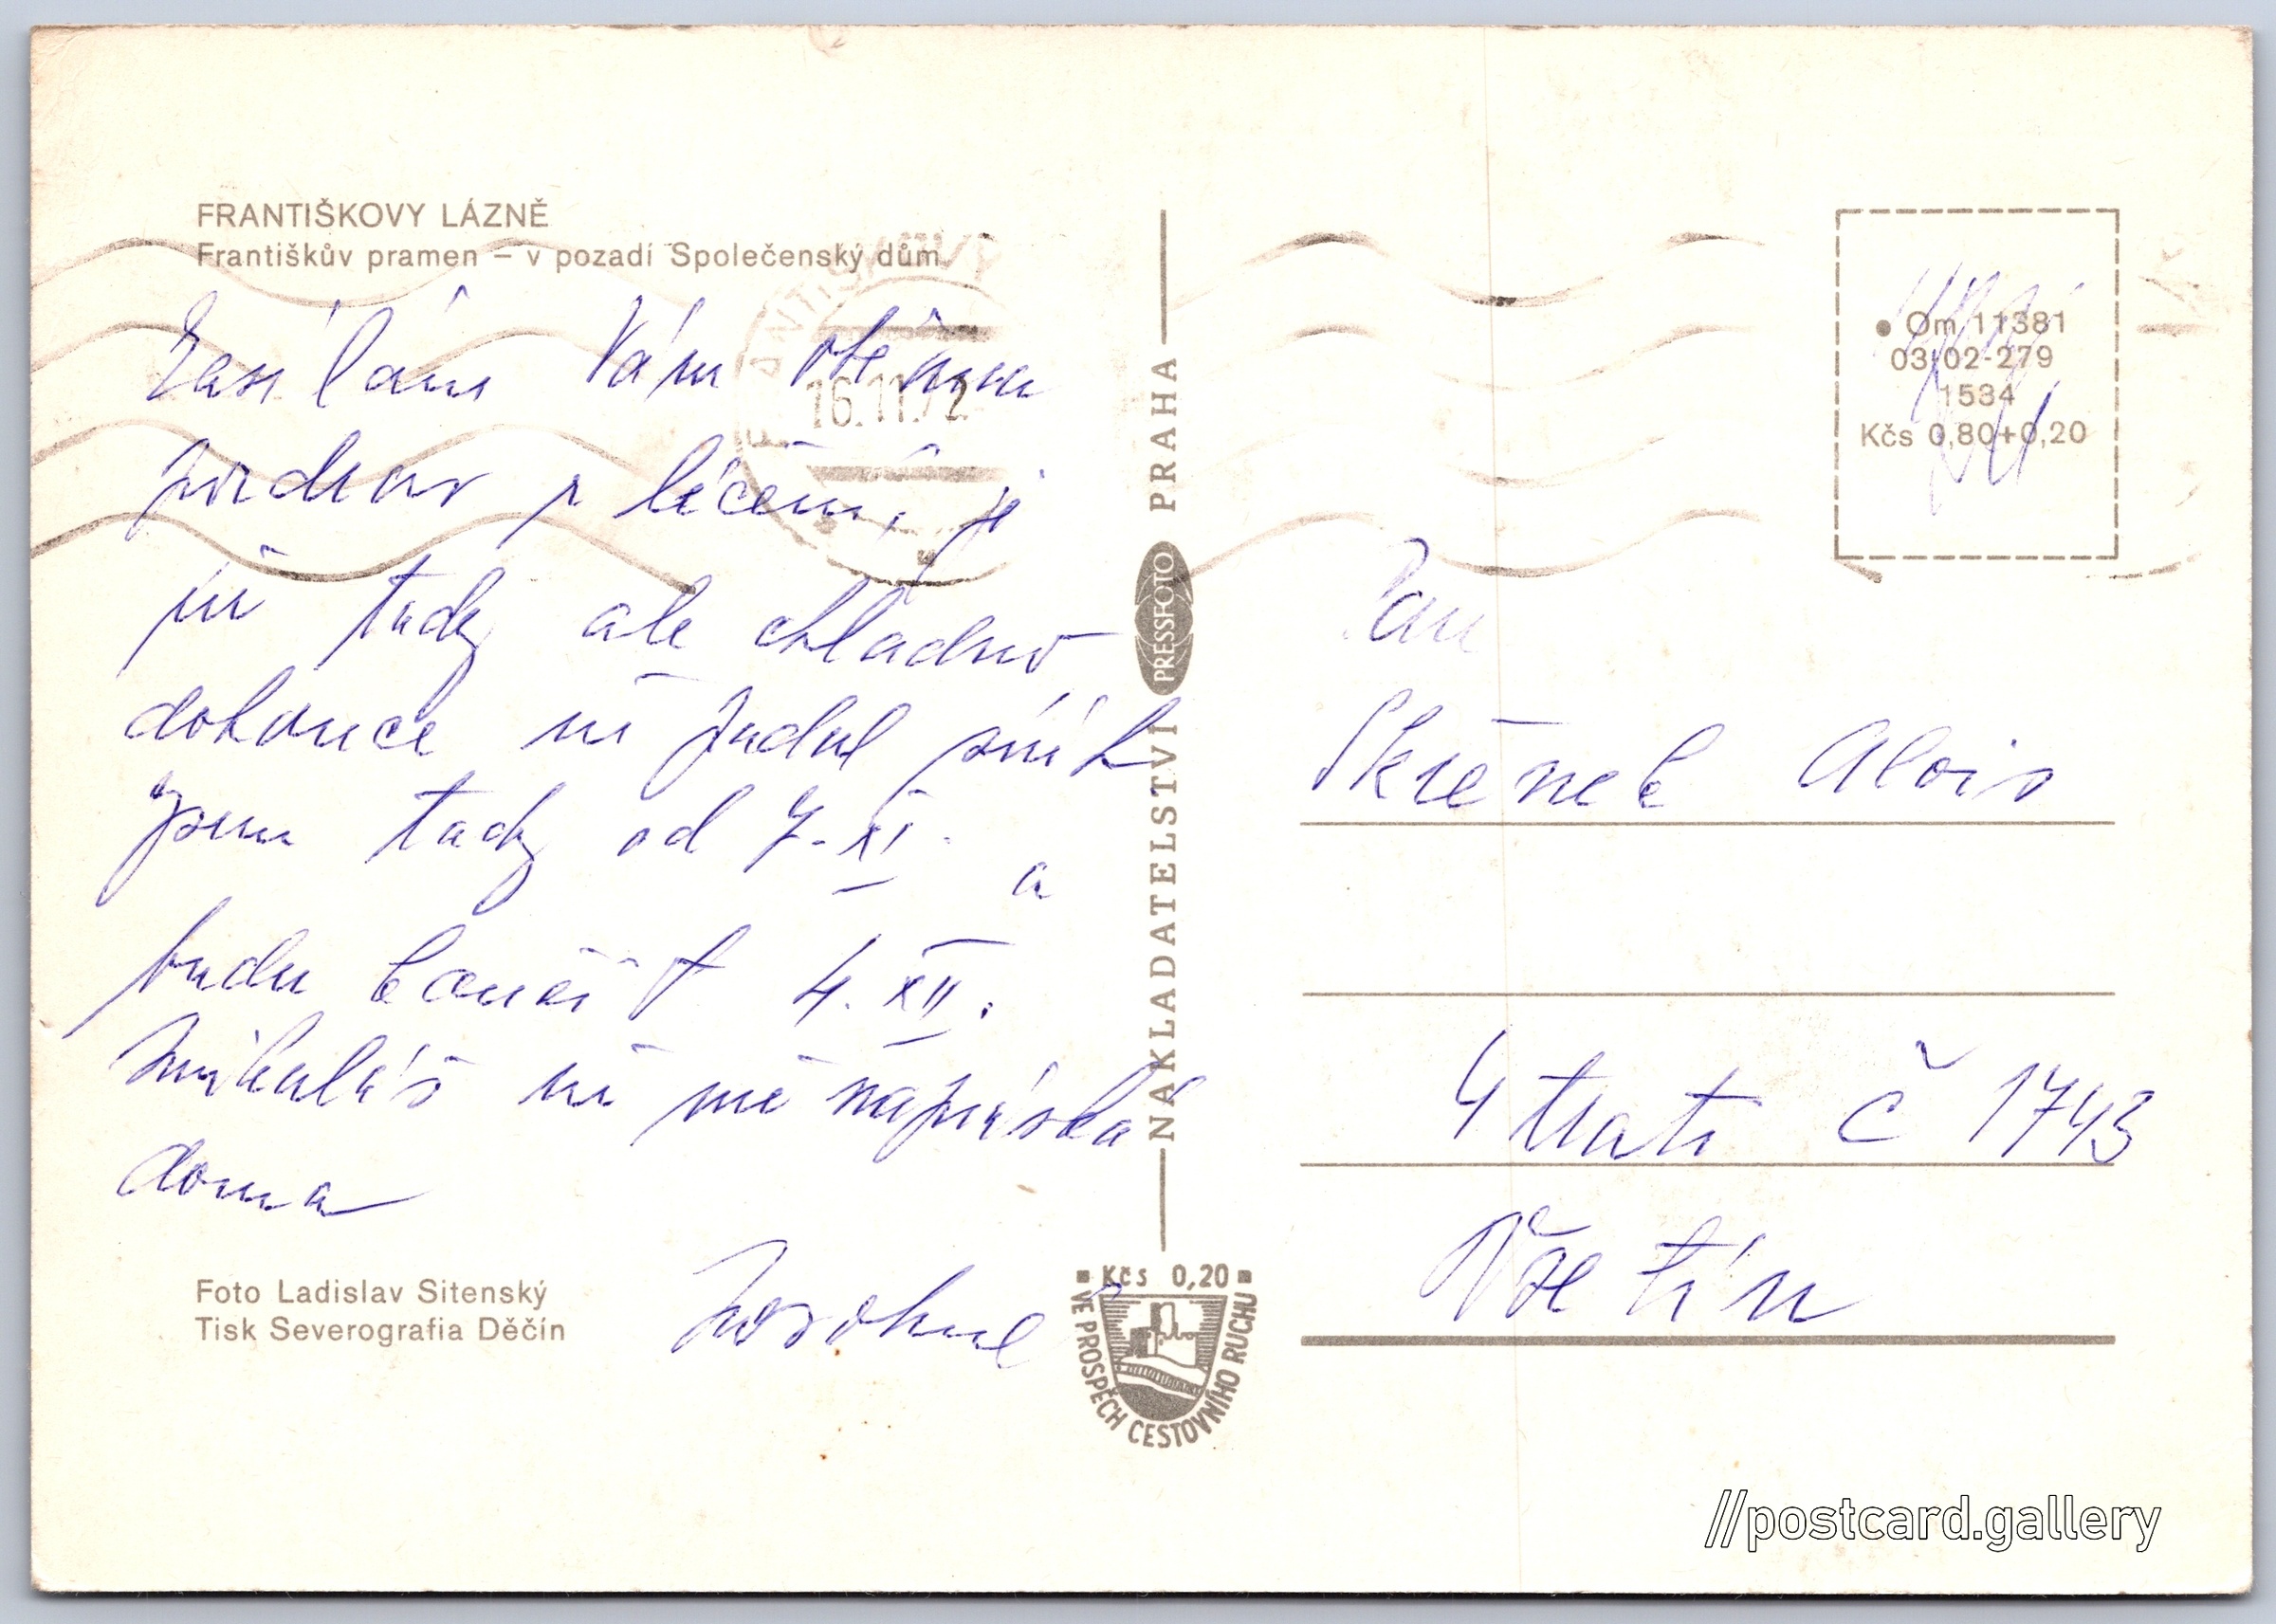 FRANTIŠKOVY LÁZNĚ
Františkův pramen – v pozadí Společenský dům
16.11.72
Zasílám Vám všem
pozdrav z léčení, je
již tady ale chladno
dokonce již padal sníh
Jsem tady od 7. XI. a
budu končit 4. XII.
Mikuláš již mě
doma
Foto Ladislav Sitenský
Tisk Severografia Děčín
NAKLADATELSTVÍ PRESSFOTO PRAHA
Kčs 0,20
VE PROSPĚCH CESTOVNÍHO RUCHU
Om 11381
03-02-279
1534
Kčs 0,80+0,20
Pan
Alois
U trati č 1743
Vsetín
//postcard.gallery